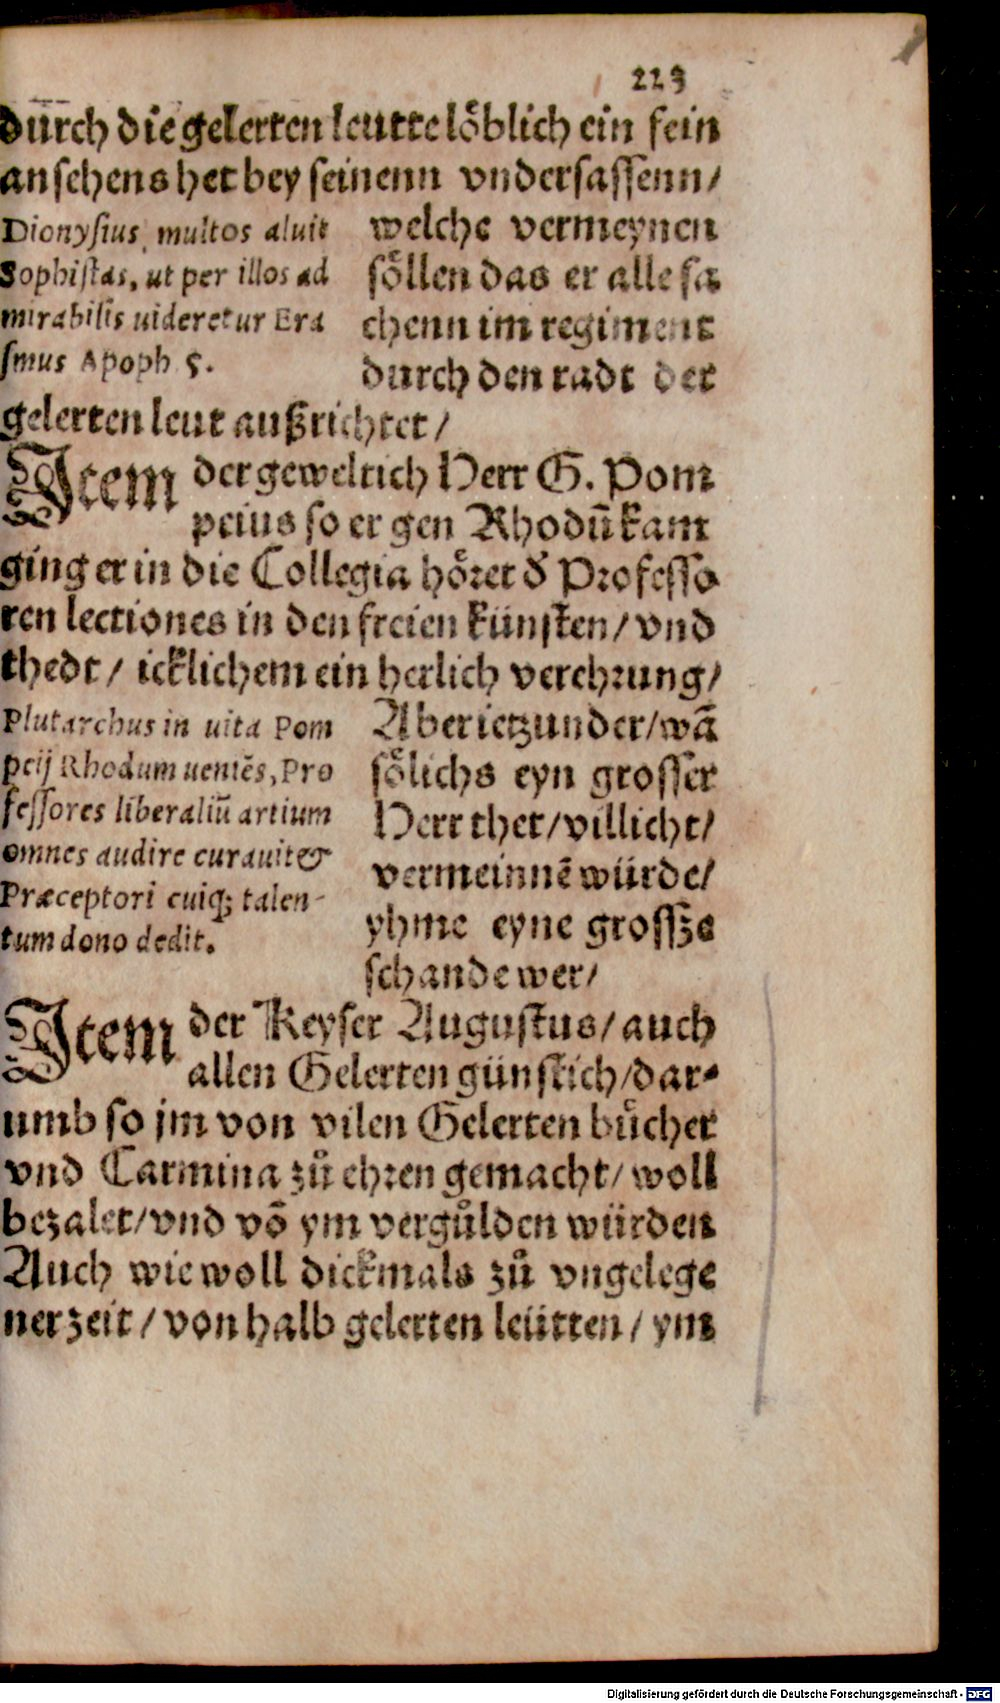 223
durch die gelerten leutte löblich ein fein
ansehens het bey seinenn vndersassenn/
Dionysius multos aluit
Sophistas, ut per illos ad
mirabilis uideretur Era
smus Apoph 5.
welche vermeynen
söllen das er alle sa
chenn im regiment
durch den radt der
gelerten leut außrichtet/
Item der geweltich Herr G. Pom
peius so er gen Rhodũ kam
ging er in die Collegia höret d̕ Professo
ren lectiones in den freien künsten/ vnd
thedt/ icklichem ein herlich verehrung/
Plutarchus in uita Pom
peij Rhodum ueniẽs, Pro
fessores liberaliũ artium
omnes audire curauit &
Præceptori cuiq; talen-
tum dono dedit.
Aber ietzunder/ wã
sölichs eyn grosser
Herr thet/ villicht/
vermeinnẽ würde/
yhme eyne grossze
schande wer/
Item der Keyser Augustus/ auch
allen Gelerten günstich/ dar-
umb so jm von vilen Gelerten bůcher
vnd Carmina zů ehren gemacht/ woll
bezalet/ vnd võ ym vergůlden würden
Auch wie woll dickmals zů vngelege
ner zeit/ von halb gelerten leütten/ ym
Digitalisierung gefördert durch die Deutsche Forschungsgemeinschaft - DFG